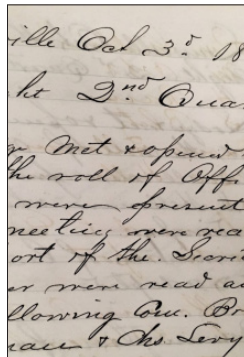 ille Oct 3.d 18
ht 2nd Qua
r met & opened
he roll of Off
were present
neeting were rea
ort of the Secre
er were read a
llowing Com. Br
& Chs. Levy